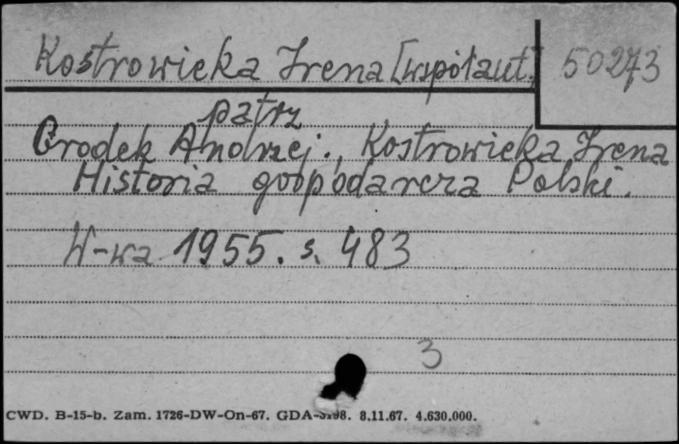 Kostrowicka Irena [współaut.] 50273
patrz
Grodek Andrzej., Kostrowicka Irena
Historia gospodarcza Polski.
W-wa 1955. s. 483
3
CWD. B-15-b. Zam. 1726-DW-On-67. GDA- 8.11.67. 4.630.000.